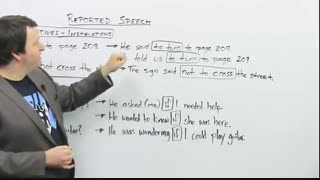 REPORTED SPEECH
TIVES + INSTRUCTIONS
to page 209. → He said to turn to page 209
told us to turn to page 209
not cross the st → The sign said not to cross the street.
→ He asked (me) if I needed help.
→ He wanted to know if she was here.
→ He was wondering if I could play guitar.